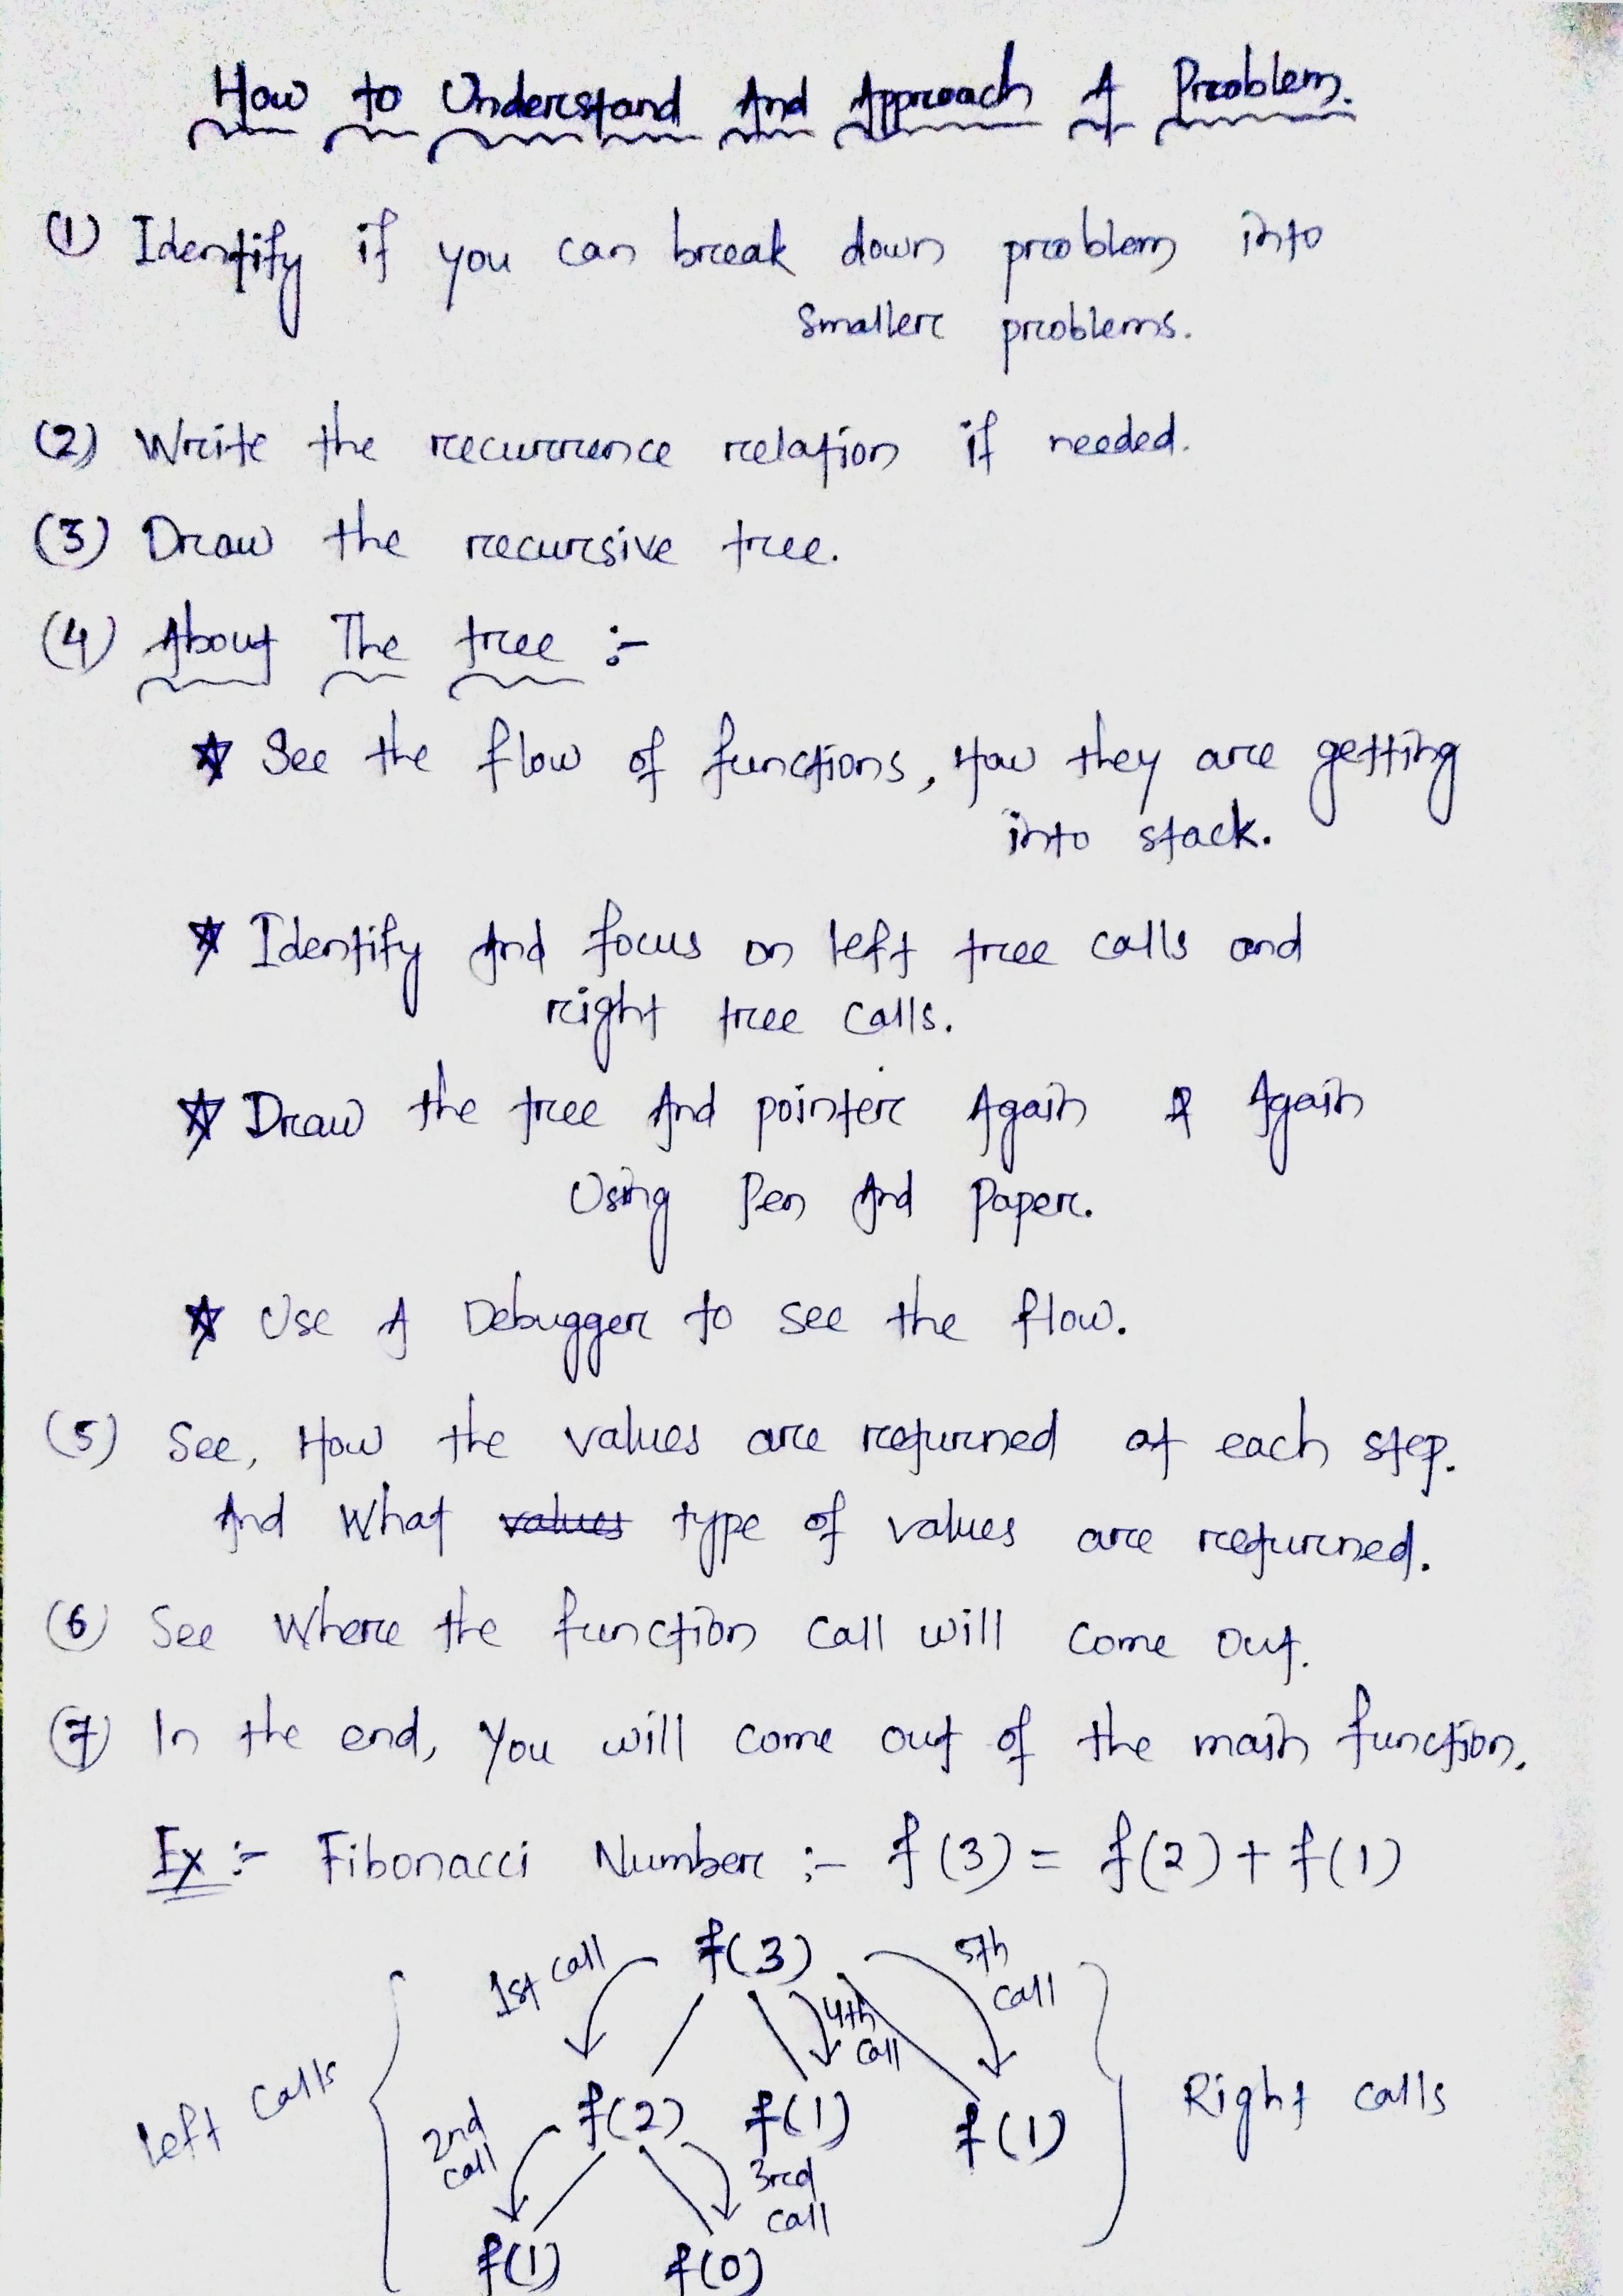 How to Understand And Approach A Problem.
(1) Identify if you can break down problem into
smaller problems.
(2) Write the recurrence relation if needed.
(3) Draw the recursive tree.
(4) About The tree :-
★ See the flow of functions, How they are getting
into stack.
★ Identify And focus on left tree calls and
right tree calls.
★ Draw the tree And pointer Again & Again
Using Pen And Paper.
★ Use A Debugger to see the flow.
(5) See, How the values are returned at each step.
And What values type of values are returned.
(6) See Where the function call will come out.
(7) In the end, You will come out of the main function.
Ex :- Fibonacci Number :- f(3) = f(2) + f(1)
1st call f(3) 5th call
4th call
Left calls f(2) f(1) f(1) Right calls
2nd call 3rd call
f(1) f(0)